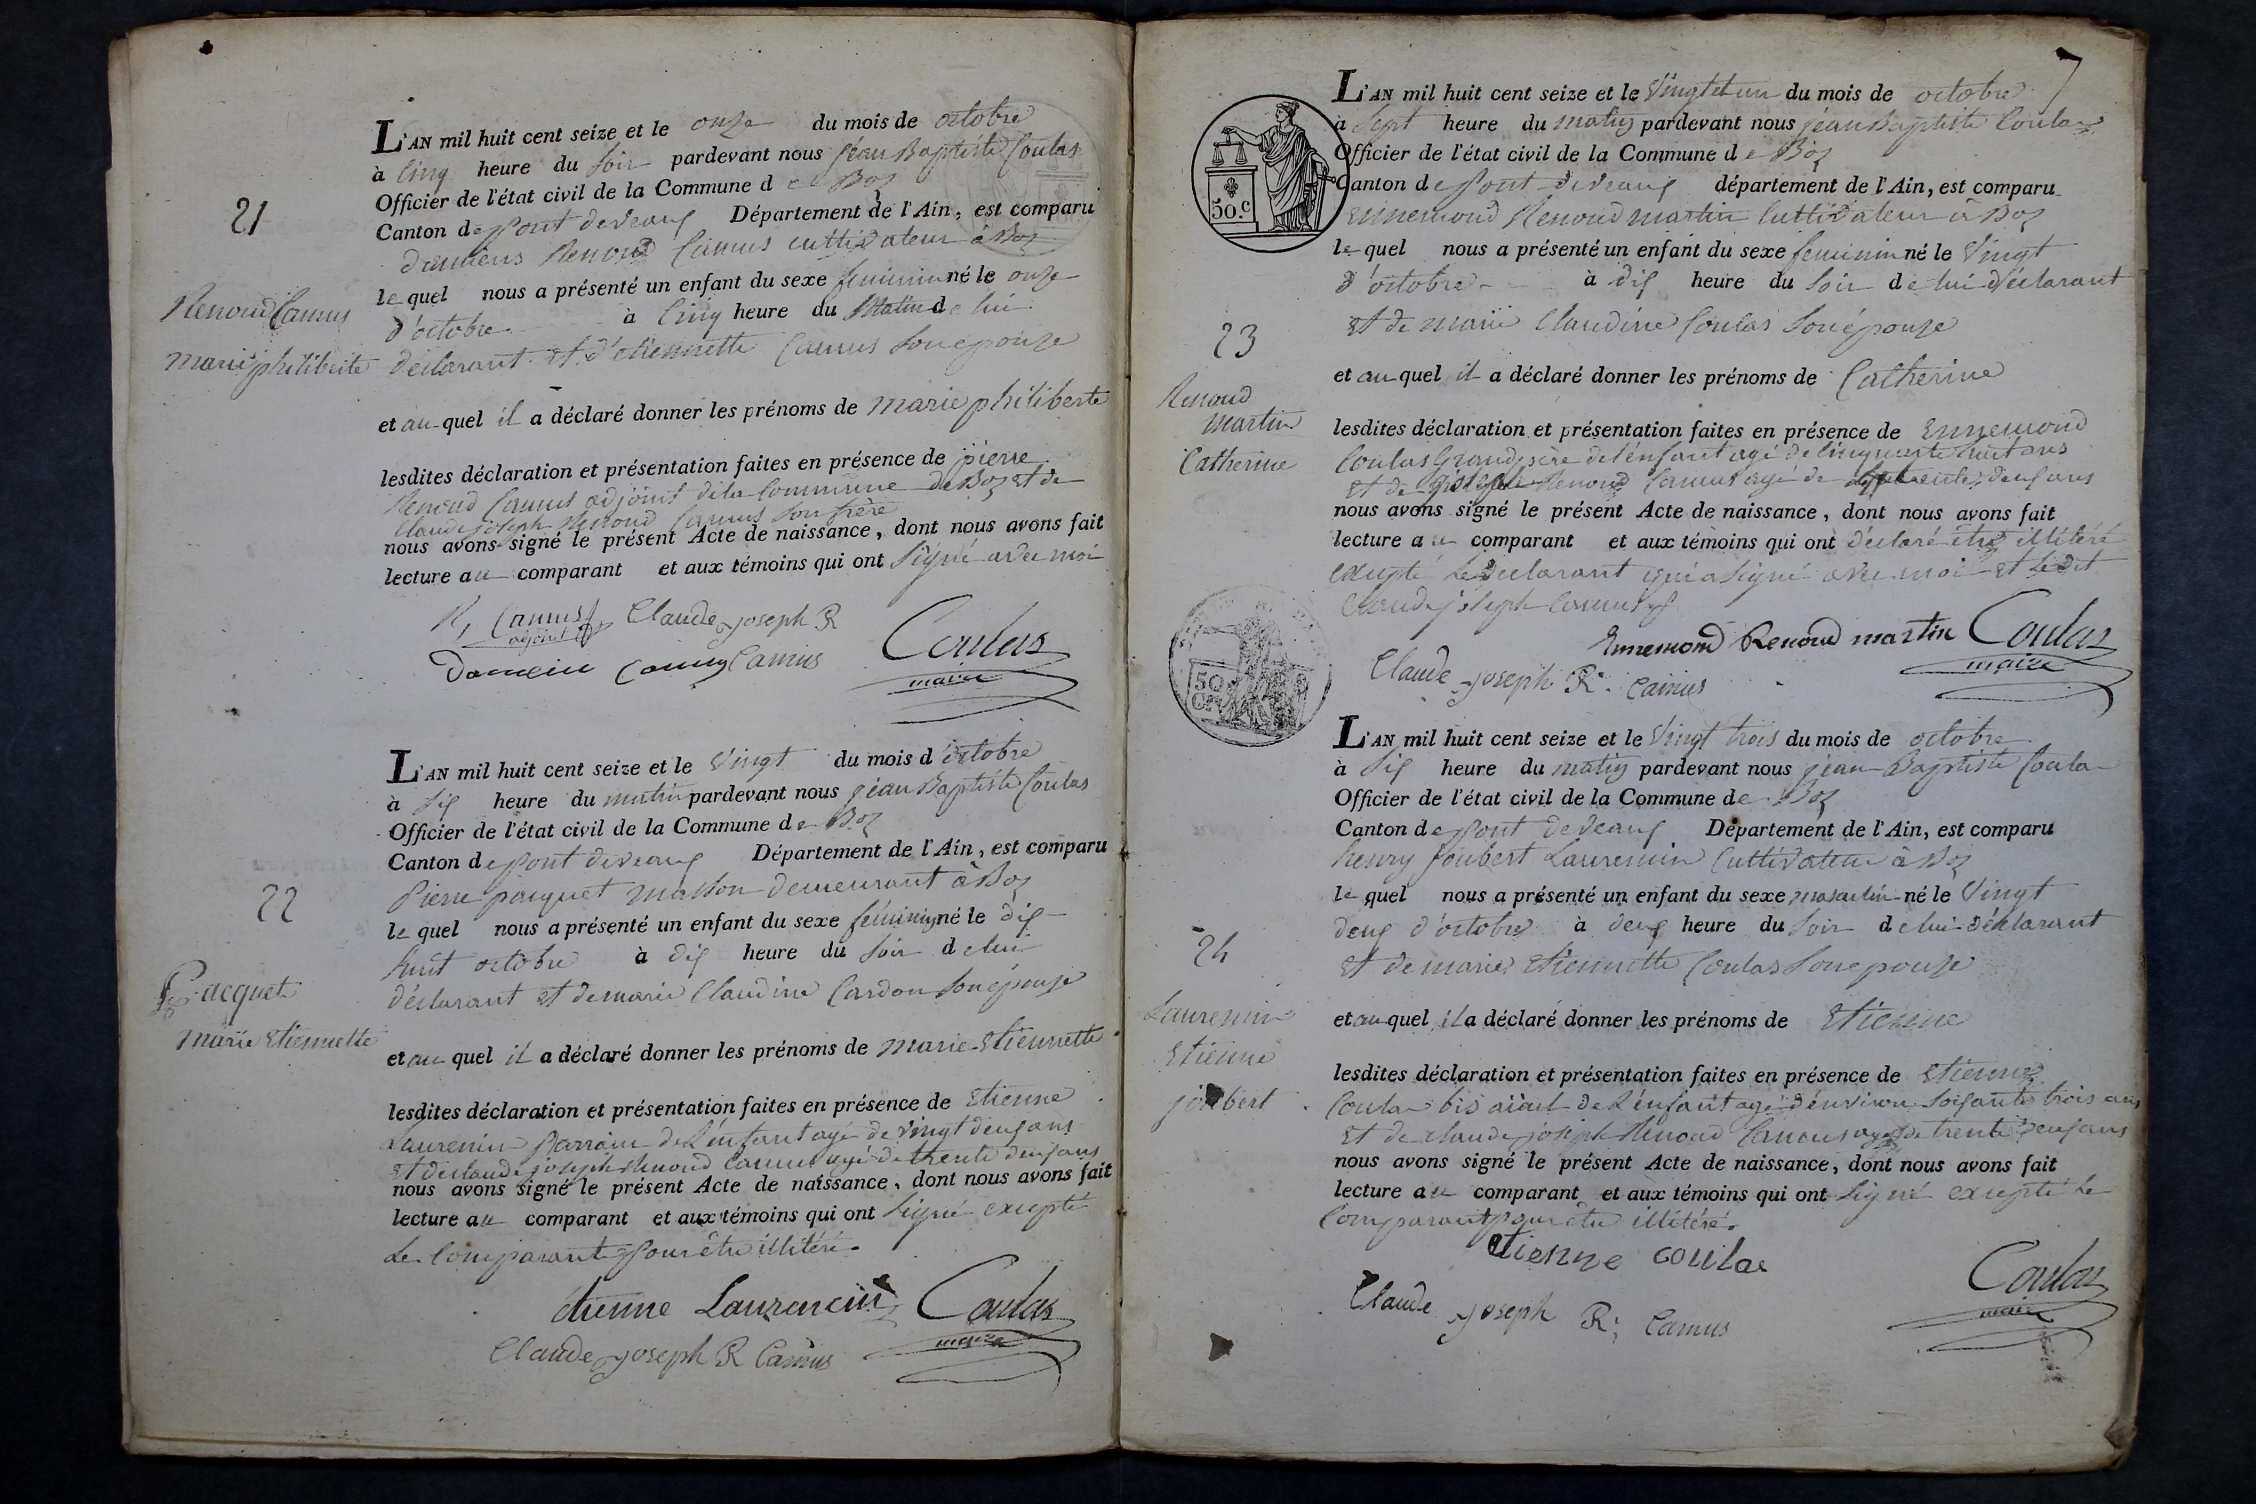 21
Renoud Camus
Marie philiberte
L'AN mil huit cent seize et le onze du mois de octobre
à Cinq heure du Soir pardevant nous jean Baptiste Coulas
Officier de l'état civil de la Commune de Boz
Canton de pont devaux Département de l'Ain, est comparu
Renoud Camus cultivateur à Boz
lequel nous a présenté un enfant du sexe feminin né le onze
d'octobre à Cinq heure du Matin de lui
déclarant et d'etiennette Camus son epouze
et au quel il a déclaré donner les prénoms de marie philiberte
lesdites déclaration et présentation faites en présence de pierre
Renoud Camus adjoint de la Commune de Boz et de
Claude joseph Renoud Camus son frère
nous avons signé le présent Acte de naissance, dont nous avons fait
lecture au comparant et aux témoins qui ont Signé avec moi
R, Camus Claude joseph R
adjoint
Camus Coulas
maire
22
Pacquet
Marie Etiennette
L'AN mil huit cent seize et le Vingt du mois d'octobre
à Six heure du matin pardevant nous jean Baptiste Coulas
Officier de l'état civil de la Commune de Boz
Canton de pont devaux Département de l'Ain, est comparu
Pierre paquet masson demeurant à Boz
lequel nous a présenté un enfant du sexe féminin né le dix
huit octobre à dix heure du Soir de lui
déclarant et de marie Claudine Cardon son épouze
et au quel il a déclaré donner les prénoms de marie Etiennette
lesdites déclaration et présentation faites en présence de Etienne
Laurencin Parrain de L'enfant agé de vingt deux ans
et de claude joseph Renoud camus agé de trente deux ans
nous avons signé le présent Acte de naissance, dont nous avons fait
lecture au comparant et aux témoins qui ont Signé excepté
Le Comparant pour être illitéré.
étienne Laurencin Coulas
maire
Claude joseph R Camus
7
50.c
L'AN mil huit cent seize et le Vingt et un du mois de octobre
à Sept heure du matin pardevant nous jean Baptiste Coulas
Officier de l'état civil de la Commune de Boz
Canton de pont devaux département de l'Ain, est comparu
Ennemond Renoud martin Cultivateur à Boz
lequel nous a présenté un enfant du sexe feminin né le Vingt
d'octobre à dix heure du Soir de lui déclarant
et de marie Claudine Coulas Son épouze
23
Renoud
Martin
Catherine
et au quel il a déclaré donner les prénoms de Catherine
lesdites déclaration et présentation faites en présence de Ennemond
Coulas Grand père de l'énfant agé de Cinquante huit ans
et de joseph Renoud Camus agé de trente deux ans
nous avons signé le présent Acte de naissance, dont nous avons fait
lecture au comparant et aux témoins qui ont déclaré être illitéré
excepté Le declarant qui a signé avec moi et le dit
Claude joseph Camus
Ennemond Renoud martin Coulas
maire
Claude joseph R. Camus
50
L'AN mil huit cent seize et le Vingt trois du mois de octobre
à Six heure du matin pardevant nous jean Baptiste Coulas
Officier de l'état civil de la Commune de Boz
Canton de pont devaux Département de l'Ain, est comparu
henry joubert Laurencin Cultivateur à Boz
lequel nous a présenté un enfant du sexe masculin né le Vingt
deux d'octobre à deux heure du Soir de lui déclarant
et de marie Etiennette Coulas Son epouze
24
Laurencin
Etienne
joubert
et au quel il a déclaré donner les prénoms de Etienne
lesdites déclaration et présentation faites en présence de Etienne
Coulas bis aieul de L'énfant agé d'énviron Soixante trois ans
et de claude joseph Renoud Camus agé de trente deux ans
nous avons signé le présent Acte de naissance, dont nous avons fait
lecture au comparant et aux témoins qui ont Signé excepté Le
Comparant pour être illitéré.
etienne coulas
Coulas
maire
Claude joseph R. Camus